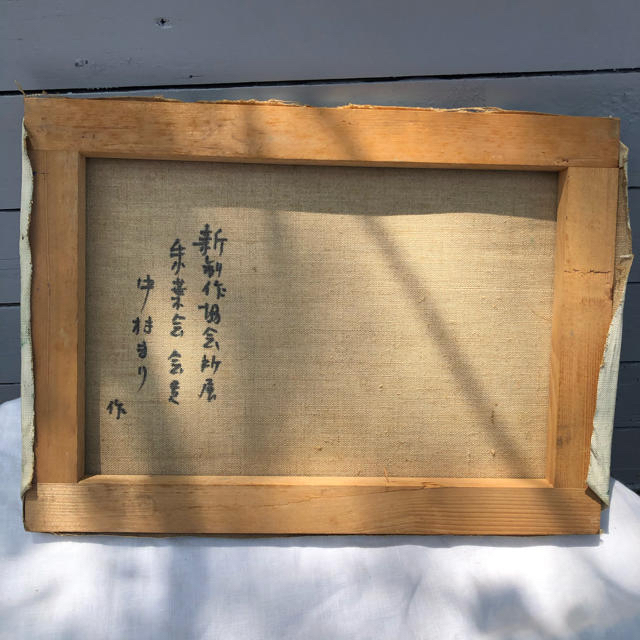 新制作協会所属
朱葉会会員
中村まり
作